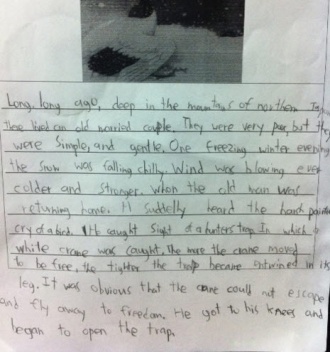 Long, long ago, deep in the mountains of northern
there lived an old married couple. They were very poor, but
were simple, and gentle. One freezing winter evening
the snow was falling chilly. Wind was blowing
colder and stronger. When the old man was
returning home. H suddelly heard the
cry of a bird. He caught sight of a hunters trap In which
white crane was caught. The more the crane moved
to be free, the tighter the trap became entwined in
leg. It was obvious that the crane could not escape
and fly away to freedom. He got to his knees and
began to open the trap.